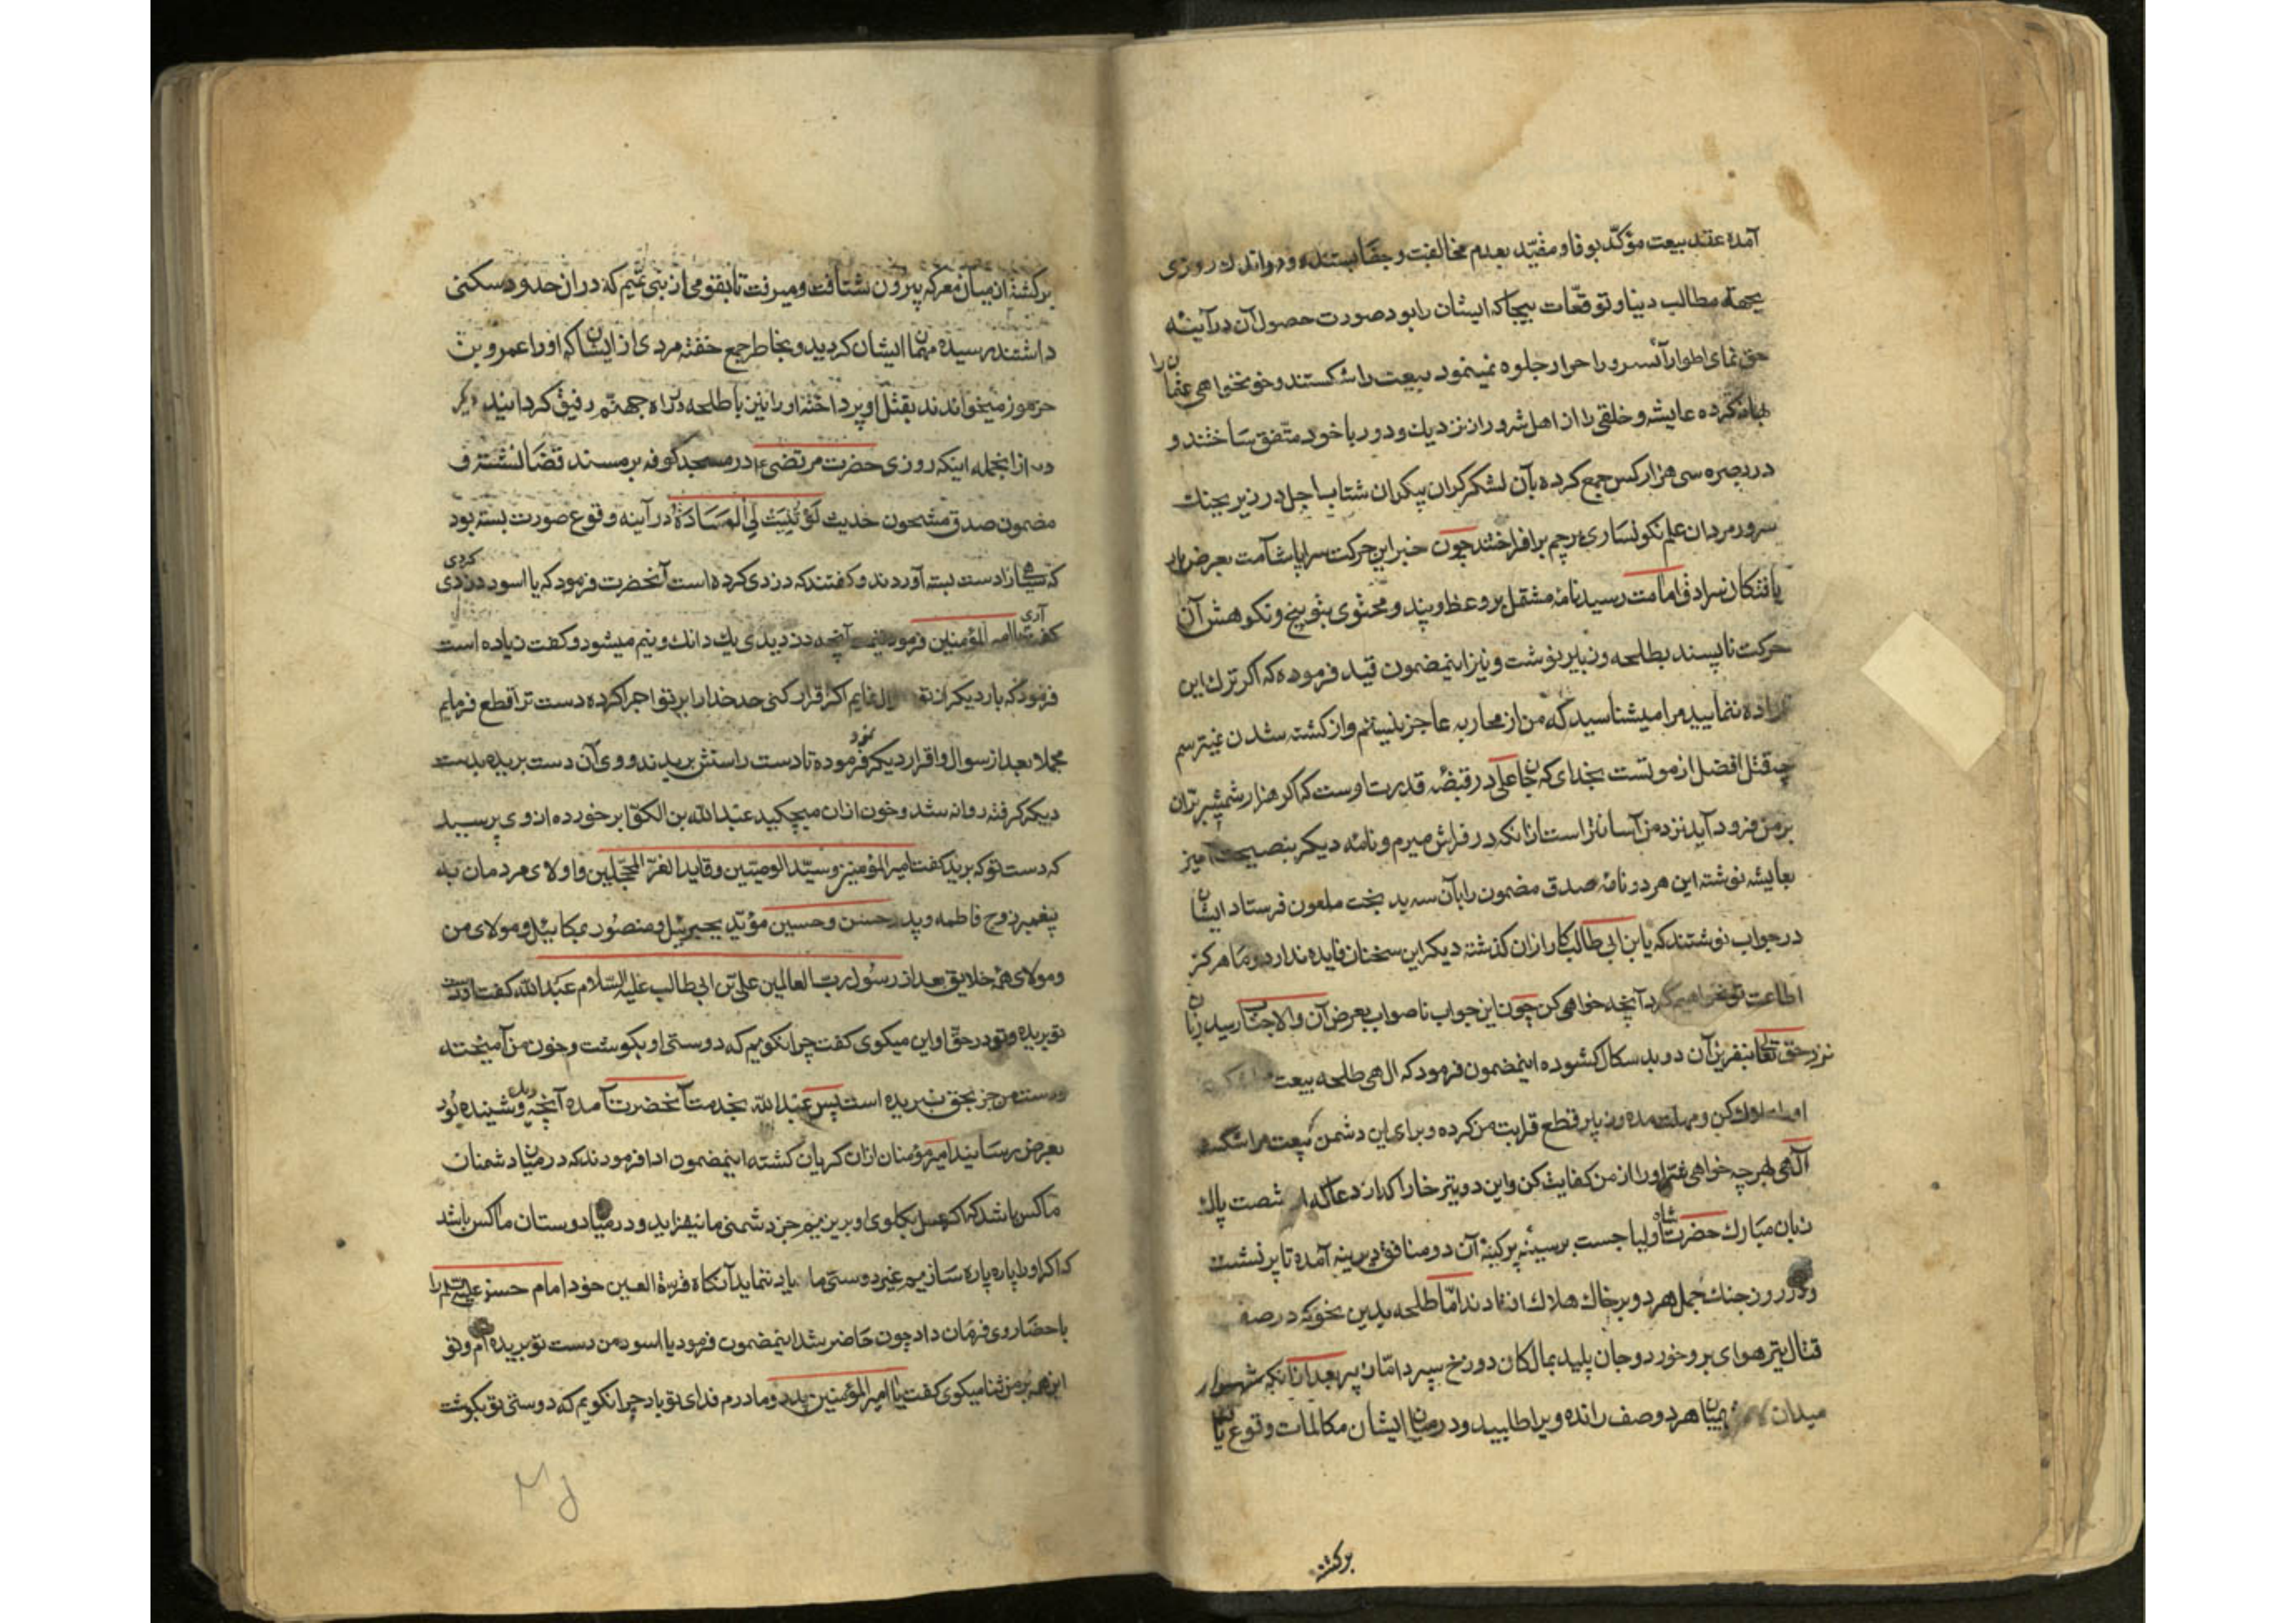 آمده عقد بیعت مؤکّد بوفا و مقیّد بعدم مخالفت و جفا بستند و در اندك روزی
بجهة مطالب دنیا و توقّعات بیجا که ایشان را بود صورت حصول آن در آینه
حق نمای اطوار آنسرور احرار جلوه نمینمود بیعت را شکستند و خونخواهی عثمان را
بهانه کرده عایشه و خلقی را از اهل شرور از نزدیك و دور با خود متّفق ساختند و
در بصره سی هزار کس جمع کرده بآن لشکر کران پیکران شتاب اجل در زیر بجنك
سرور مردان علم نکونساری پرچم برافراختند چون خبر این حرکت سراپا شآمت بعرض بار
یافتکان سرادق امامت رسید نامهٔ مشتمل بر وعظ و پند و محتوی بتوبیخ و نکوهش آن
حرکت ناپسند بطلحه و زبیر نوشت و نیز اینمضمون قید فرموده که اکر ترك این
اراده ننمایید مرا میشناسید که من از محاربه عاجز نیستم و از کشته شدن نمیترسم
چه قتل افضل از موتست بخدای که جان علی در قبضهٔ قدرت اوست که اکر هزار شمشیر برّان
بر من فرود آید نزد من آسانتر است از انکه در فراش میرم و نامه دیکر بنصیحت آمیز
بعایشه نوشته این هر دو نامهٔ صدق مضمون را بآن سه بد بخت ملعون فرستاد ایشان
در جواب نوشتند که یا بن ابی طالب کار از ان کذشته دیکر این سخنان فایده ندارد و ما هرکز
اطاعت تو نخواهیم کرد آنچه خواهی کن چون این جواب ناصواب بعرض آن والاجناب رسید زبان
نزد حق تعالی بنفرین آن دو بد سکال کشوده اینمضمون فرمود که الهی طلحه بیعت
او را هلاك کن و مهلت مده و زبیر قطع قرابت من کرده و برای این دشمن بیعت مرا شکسته
آلهی بهر چه خواهی شرّ او را از من کفایت کن و این دو تیر خارا کذار دعا که از شصت پاك
زبان مبارك حضرت شاه اولیا جست بر سینه پر کینهٔ آن دو منافق دیرینه آمده تا پر نشست
و در روز جنك جمل هر دو بر خاك هلاك افتادند امّا طلحه بدین نحو که در صف
قتال تیر هوای برو خورد و جان پلید بمالکان دوزخ سپرد امّا زبیر بعد از انکه شهسوار
میدان بمیان هر دو صف رانده ویرا طلبید و در میان ایشان مکالمات وقوع یافت
برکشته
برکشته از میان معرکه بیرون شتافت و میرفت تا بقومی از بنی تمیم که در ان حدود سکنی
داشتند رسیده مهمان ایشان کردید و بخاطر جمع خفته مردی از ایشان که او را عمرو بن
جرموز میخواندند بقتل او پرداخته او را نیز با طلحه در راه جهنّم رفیق کردانید دیکر
از انجمله اینکه روزی حضرت مرتضی ع در مسجد کوفه بر مسند قضا نشسته و
مضمون صدق مشحون حدیث لَوْ ثُنِیَتْ لِیَ الْوِسَادَةُ در آینه وقوع صورت بسته بود
که سیاهی را دست بسته آوردند و کفتند که دزدی کرده است آنحضرت فرمود که یا اسود دزدی کردی
کفت آری یا امیر المؤمنین فرمود قیمت آنچه دزدیدی یك دانك و نیم میشود کفت زیاده است
فرمود که بار دیکر از تو سوال نمایم اکر اقرار کنی حد خدا را بر تو اجرا کرده دست ترا قطع فرمایم
مجملا بعد از سوال و اقرار دیکر فرموده تا دست راستش بریدند و وی آن دست بریده بدست
دیکر کرفته روانه شد و خون از ان میچکید عبد الله بن الکوّا برخورده از وی پرسید
که دست تو که برید کفت امیر المؤمنین و سیّد الوصیّین و قاید الغرّ المحجّلین و اولای مردمان به
پیغمبر زوج فاطمه و پدر حسن و حسین مؤیّد بجبرئیل و منصور بمیکائیل و مولای من
و مولای همه خلایق بعد از رسول ربّ العالمین علیّ بن ابی طالب علیه السّلام عبد الله کفت او دست
تو بریده و تو در حقّ او این میکوی کفت چرا نکویم که دوستی او بکوشت و خون من آمیخته
و دست من جز بحق نبریده است پس عبد الله بخدمت آنحضرت آمده آنچه دیده و شنیده بود
بعرض رسانید امیر مؤمنان از ان کریان کشته اینمضمون ادا فرمودند که در میان دشمنان
ما کس باشد که اکر عسل بکلوی او بریزیم جز دشمنی ما نیفزاید و در میان دوستان ما کس باشد
که اکر او را پاره پاره سازیم غیر دوستی ما زیاد ننماید آنکاه قرّة العین خود امام حسن علیه السلم را
باحضار وی فرمان داد چون حاضر شد اینمضمون فرمود یا اسود من دست تو بریده ام و تو
این همه بر من ثنا میکوی کفت یا امیر المؤمنین پدر و مادرم فدای تو باد چرا نکویم که دوستی تو بکوشت